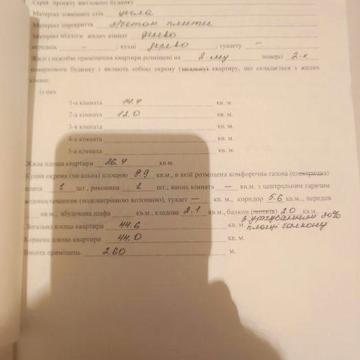 Серія проекту житлового будинку
Матеріал зовнішніх стін цегла
Матеріал перекриття бетон плити
Матеріал підлоги жилих кімнат дерево
передніх – ; кухні дерево ; туалету –
Жилі і підсобні приміщення квартири розміщені на 2-му поверсі 2-х
поверхового будинку і являють собою окрему (загальну) квартиру, що складається з жилих
кімнат:
із них
1-а кімната 14.4 кв. м.
2-а кімната 12.0 кв. м.
3-я кімната кв. м.
4-а кімната кв. м.
5-а кімната кв. м.
Жила площа квартири 26.4 кв.м.
Кухня окрема (загальна) площею 8.9 кв.м., в якій розміщена комфорочна газова
плита 1 шт., раковина 1 шт., ванна кімната – кв.м. з центральним гарячим
водопостачанням (водонагрівною колонкою), туалет – кв. м., коридор 5.6 кв.м., передня
кв. м., вбудована шафа кв.м., кладова 2.1 кв.м., балкон 2.0 кв.м.
з урахуванням 30%
площі балкону
Загальна площа квартири 44.6 кв. м.
Корисна площа квартири 44.0 кв. м.
Висота приміщень 2.60 м.